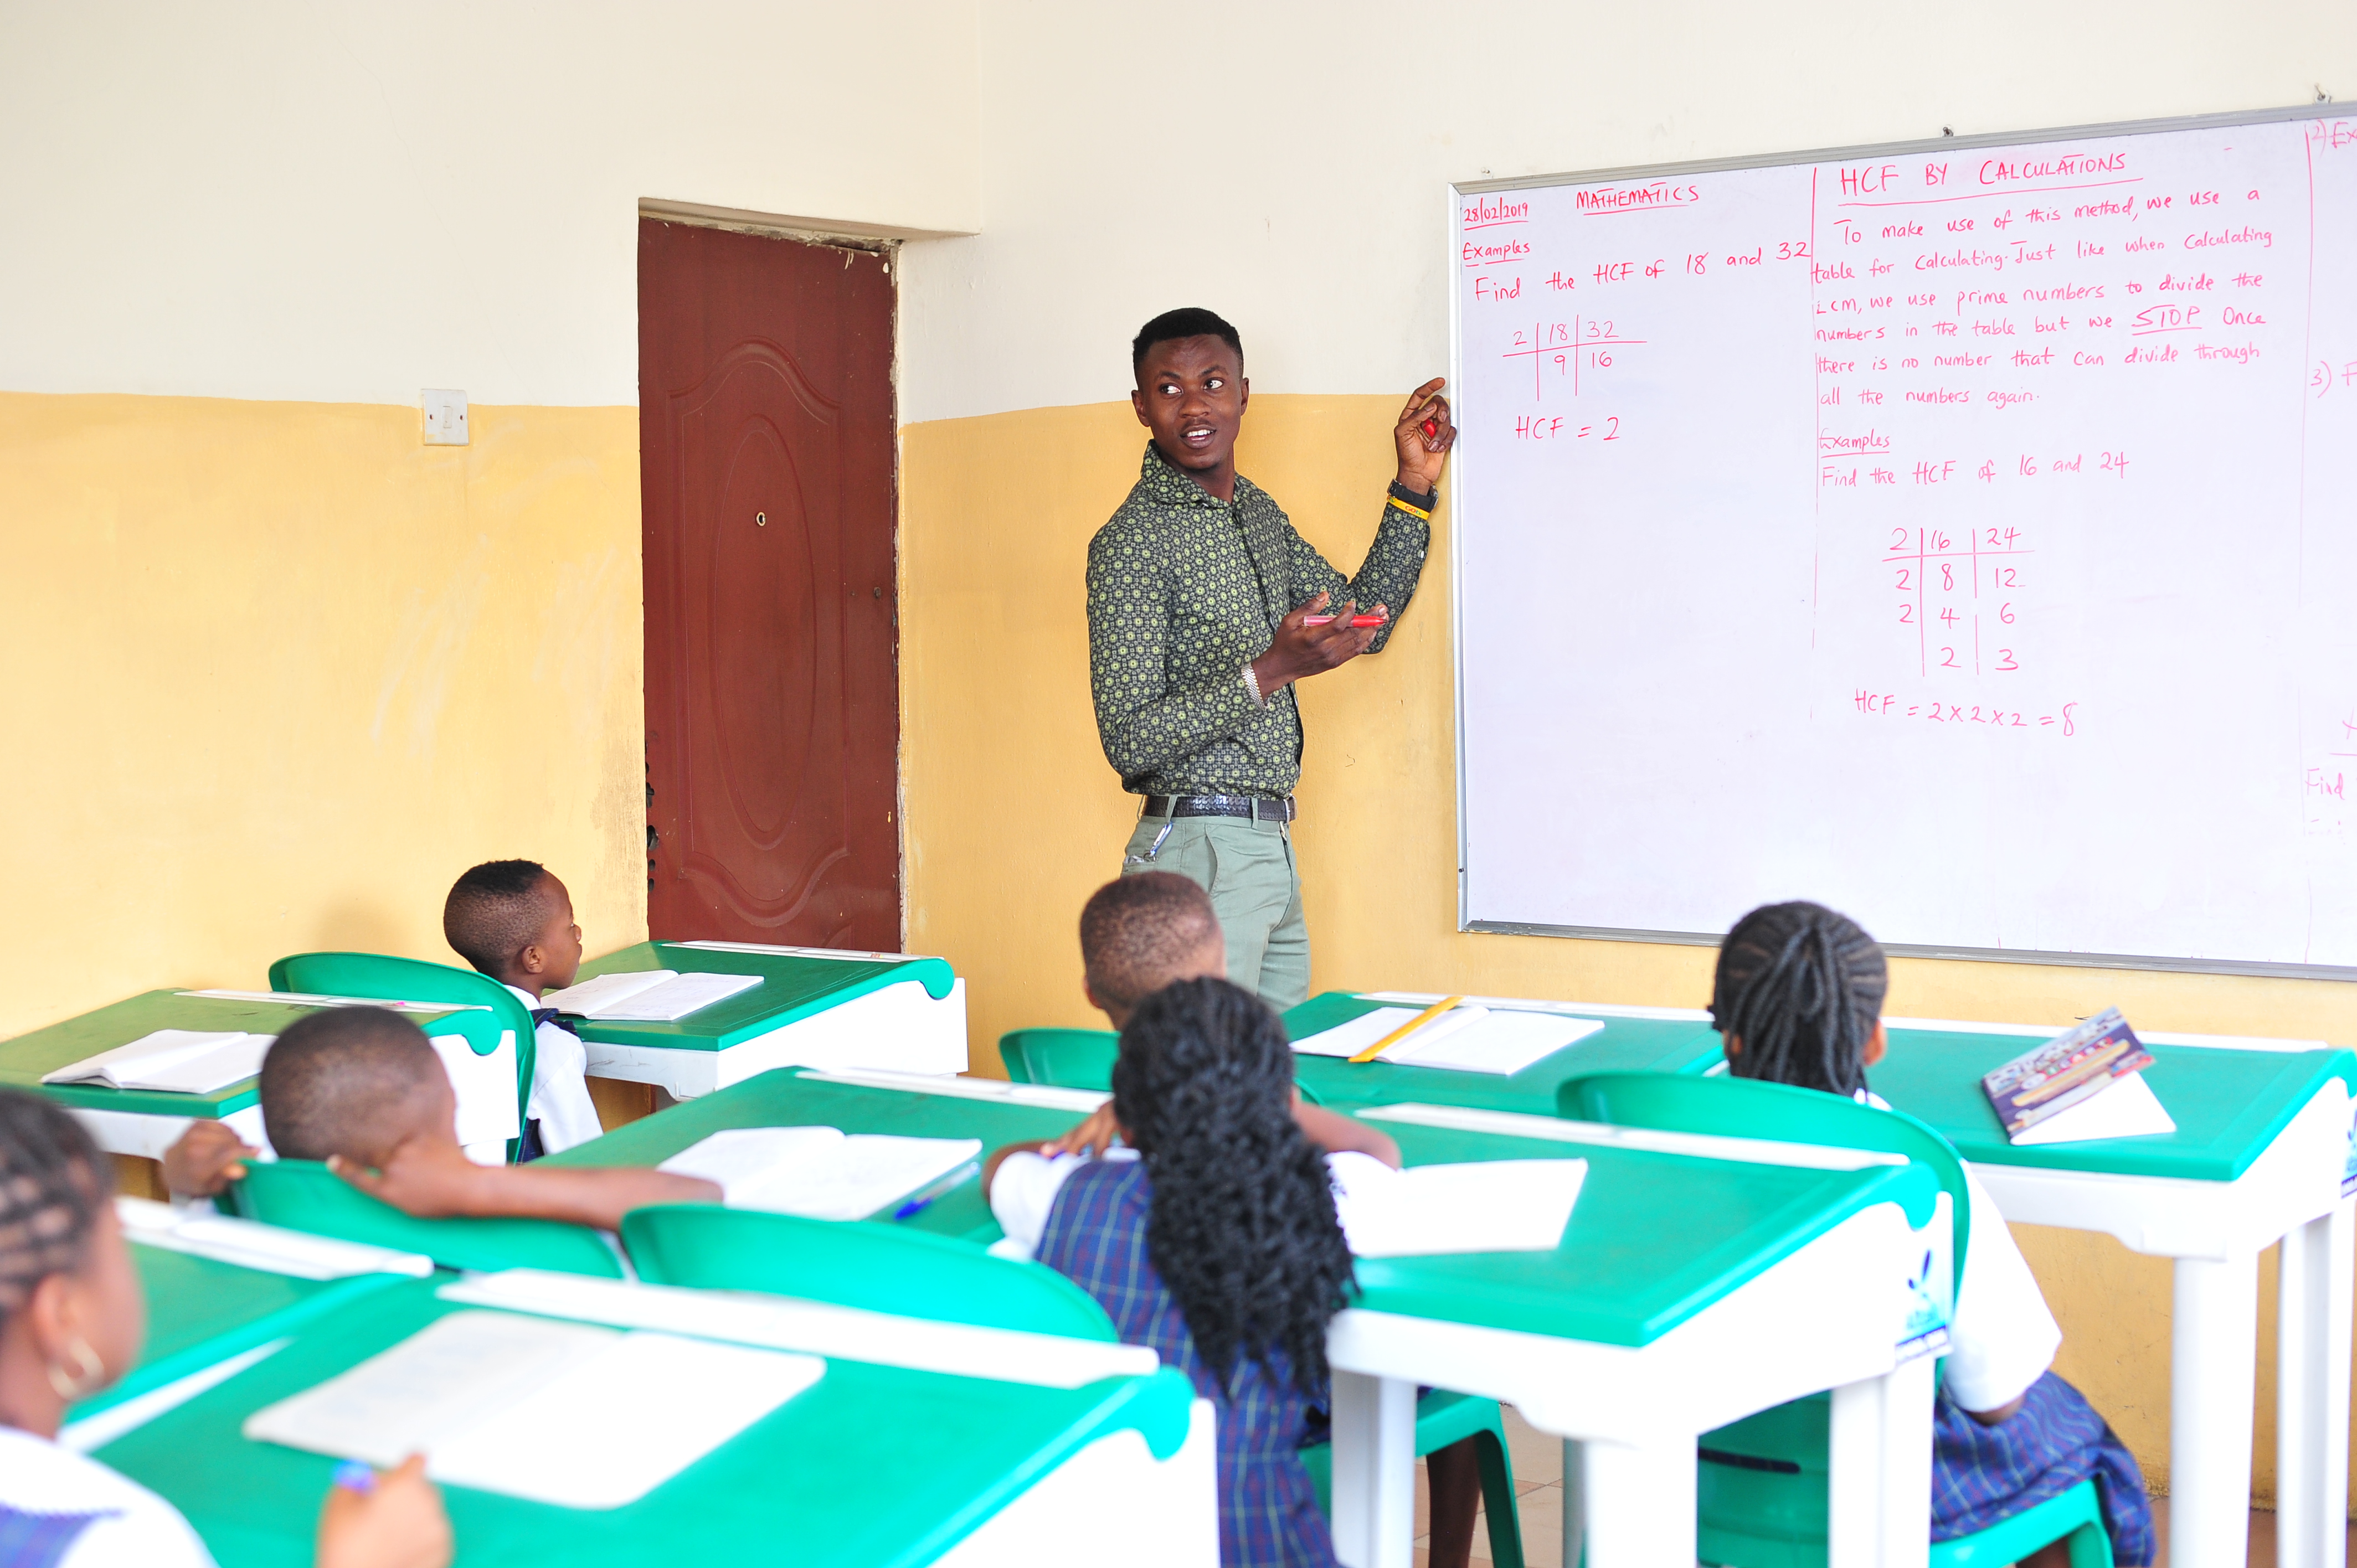 28/02/2019
MATHEMATICS
Examples
Find the HCF of 18 and 32
2 | 18 | 32
9 | 16
HCF = 2
HCF BY CALCULATIONS
To make use of this method, we use a
table for Calculating. Just like when Calculating
LCM, we use prime numbers to divide the
numbers in the table but we STOP Once
there is no number that can divide through
all the numbers again.
Examples
Find the HCF of 16 and 24
2 | 16 | 24
2 | 8 | 12
2 | 4 | 6
2 | 3
HCF = 2 x 2 x 2 = 8
2)
3)
Find